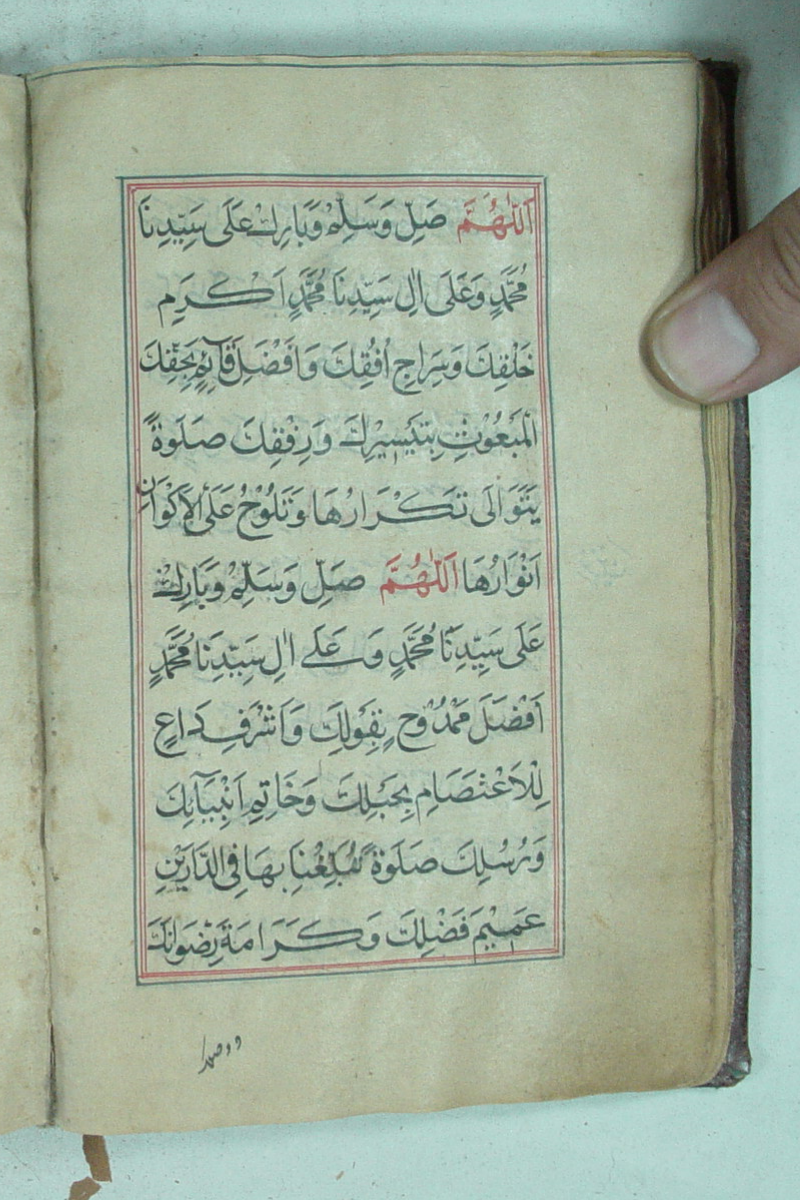 اَللّٰهُمَّ صَلِّ وَسَلِّمْ وَبَارِكْ عَلَى سَيِّدِنَا
مُحَمَّدٍ وَعَلَى اٰلِ سَيِّدِنَا مُحَمَّدٍ اَكْرَمِ
خَلْقِكَ وَسِرَاجِ اُفُقِكَ وَاَفْضَلِ قَآئِمٍ بِحَقِّكَ
الْمَبْعُوْثِ بِتَيْسِيْرِكَ وَرِفْقِكَ صَلَوةً
يَتَوَالَى تَكْرَارُهَا وَتَلُوْحُ عَلَى الْاَكْوَانِ
اَنْوَارُهَا اَللّٰهُمَّ صَلِّ وَسَلِّمْ وَبَارِكْ
عَلَى سَيِّدِنَا مُحَمَّدٍ وَعَلَے اٰلِ سَيِّدِنَا مُحَمَّدٍ
اَفْضَلَ مَمْدُوْحٍ بِقَوْلِكَ وَاَشْرَفِ دَاعٍ
لِلْاِعْتِصَامِ بِحَبْلِكَ وَخَاتِمِ اَنْبِيَآئِكَ
وَرُسُلِكَ صَلَوةً تُبَلِّغُنَا بِهَا فِى الدَّارَيْنِ
عَمِيْمَ فَضْلِكَ وَكَرَامَةَ رِضْوَانِكَ